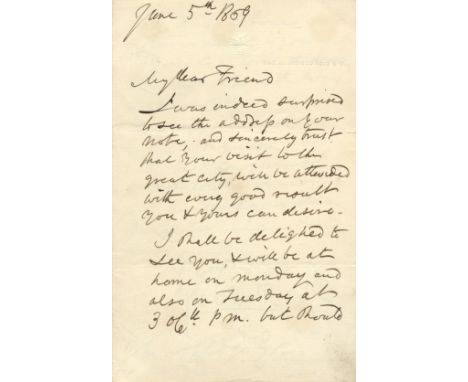 June 5th 1869
My dear Friend
I was indeed surprised
to see the address on your
note, and sincerely trust
that your visit to this
great city, will be attended
with every good result
you & yours can desire -
I shall be delighed to
see you, & will be at
home on monday and
also on Tuesday at
3 pm. but should